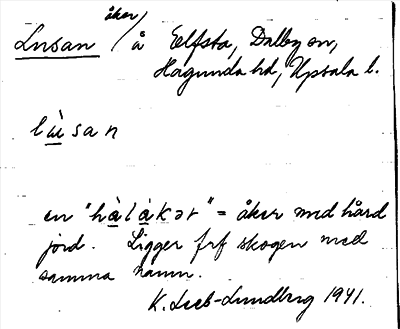 Lusan åker/ å Elfsta, Dalby sn,
Hagunda hd, Upsala l.
lu̇̀san
en "hȧ̀lȧ̀kər" = åker med hård
jord. Ligger frf skogen med
samma namn.
K. Leeb-Lundberg 1941.